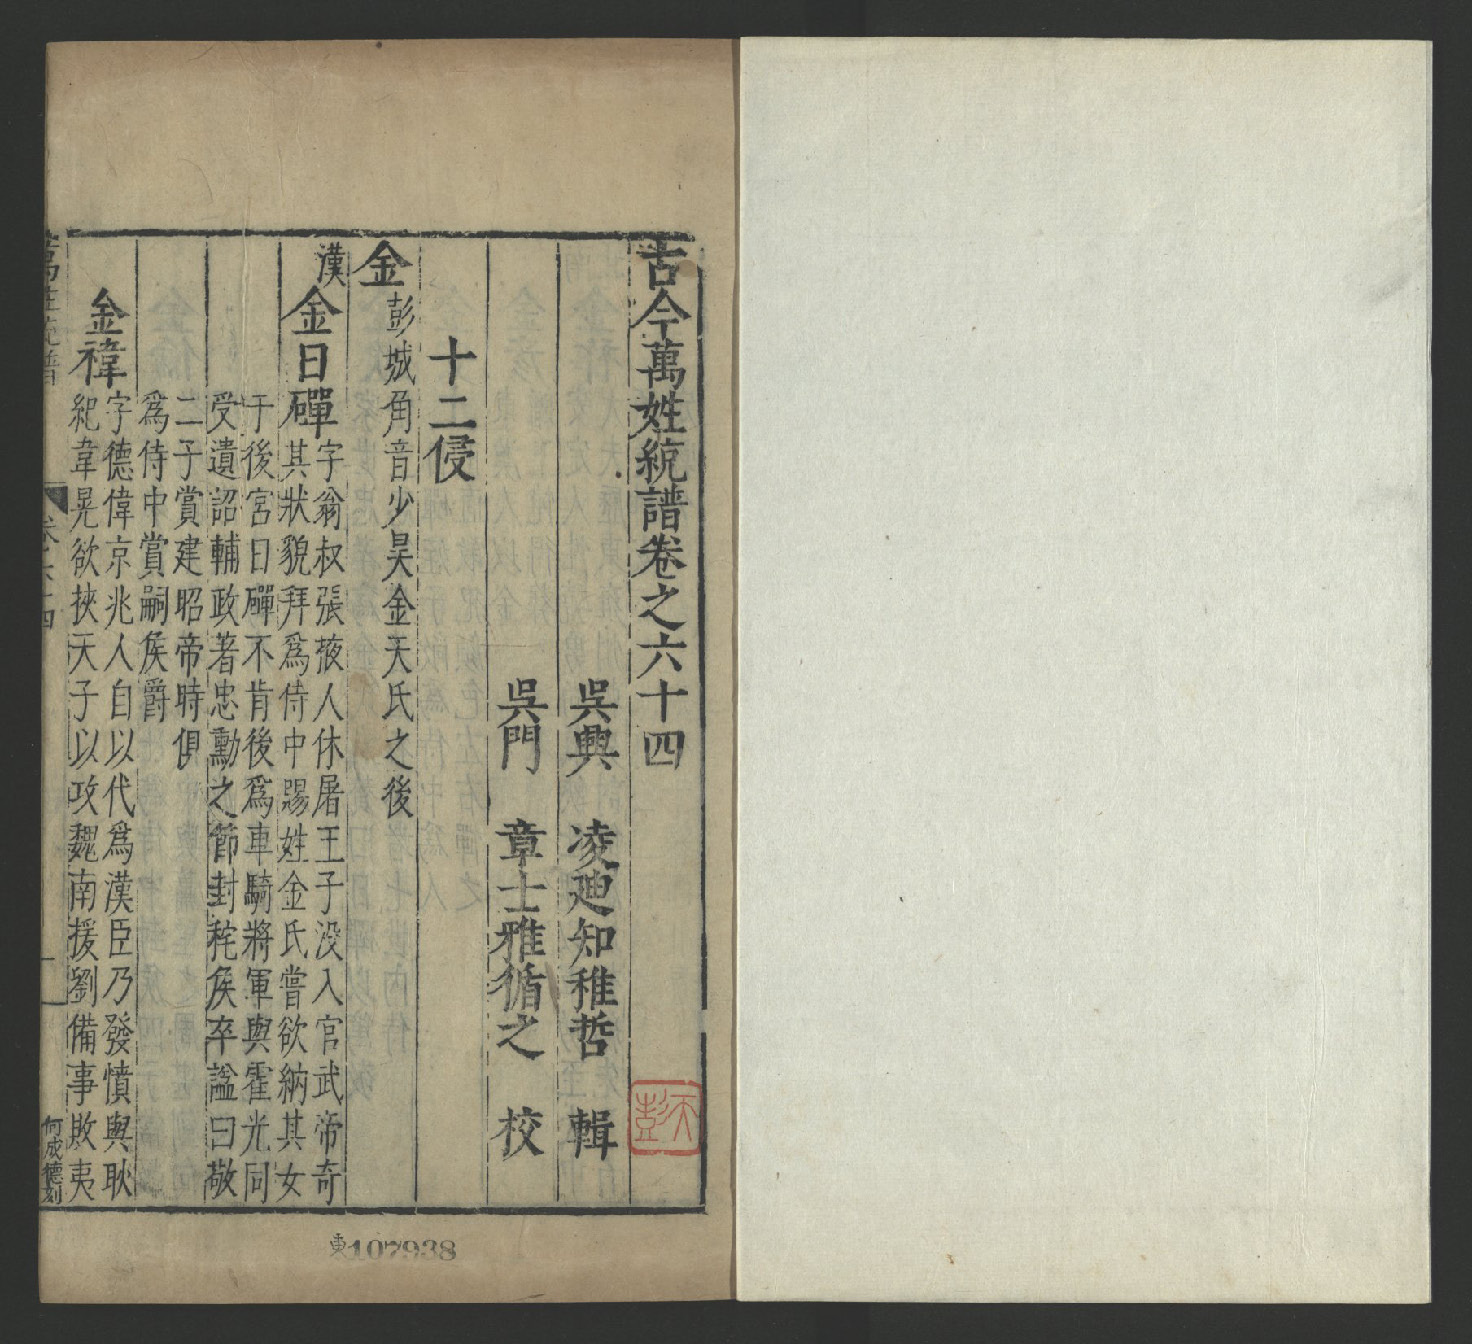 古今萬姓統譜卷之六十四
吳興 凌迪知稚哲 輯
吳門 章士雅循之 校
十二侵
金 彭城角音少昊金天氏之後
漢 金日磾 字翁叔張掖人休屠王子没入官武帝奇
其狀貌拜爲侍中賜姓金氏嘗欲納其女
于後宮日磾不肯後爲車騎將軍與霍光同
受遺詔輔政著忠勳之節封秺侯卒謚曰敬
二子賞建昭帝時俱
爲侍中賞嗣侯爵
金禕 字德偉京兆人自以代爲漢臣乃發憤與耿
紀韋晃欲挾天子以攻魏南援劉備事敗夷
卷六十四
一
何成德刻
天彭
東107938